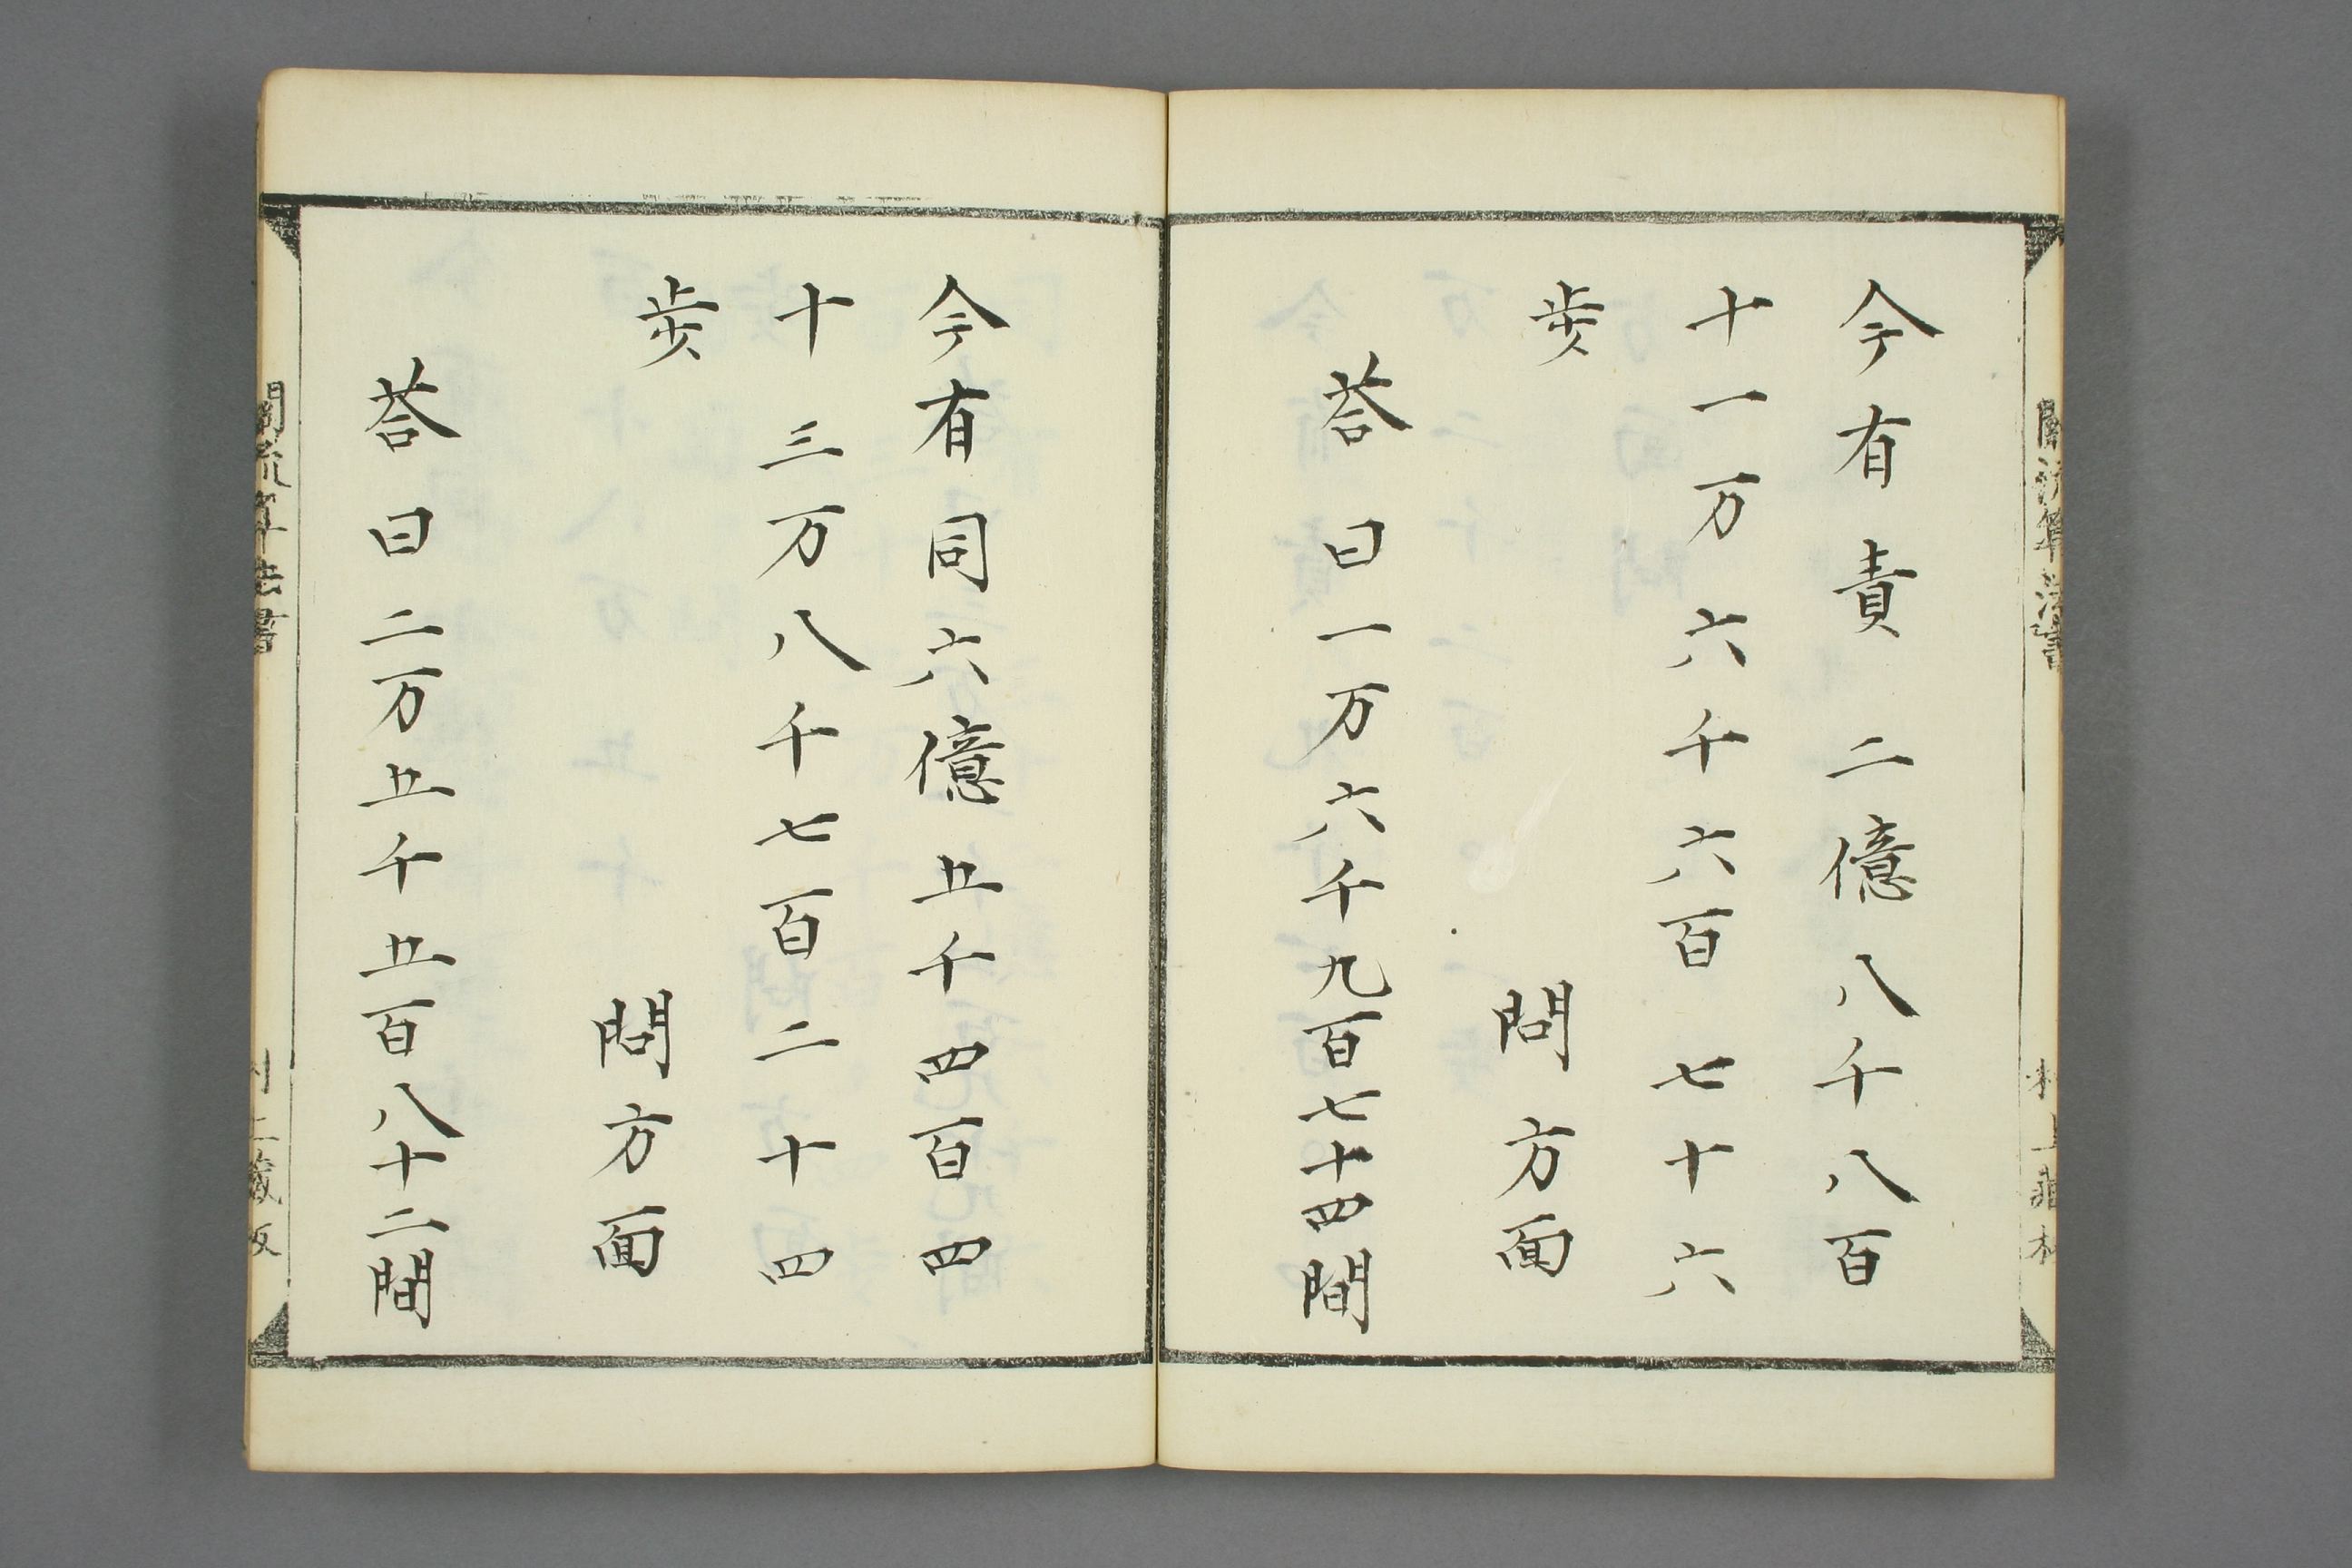 今有責二億八千八百
十一万六千六百七十六
歩
問方面
荅曰一万六千九百七十四間
今有同六億五千四百四
十三万八千七百二十四
歩
問方面
荅曰二万五千五百八十二間
関流算法書